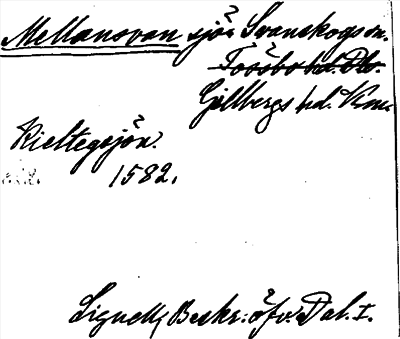 Mellansvan sjö Svanskogs sn.
Tössbo hd. Dls.
Gillbergs hd. Vrm.
Rieltegsjön.
1582.
Lignell, Beskr. öfv. Dal. I.